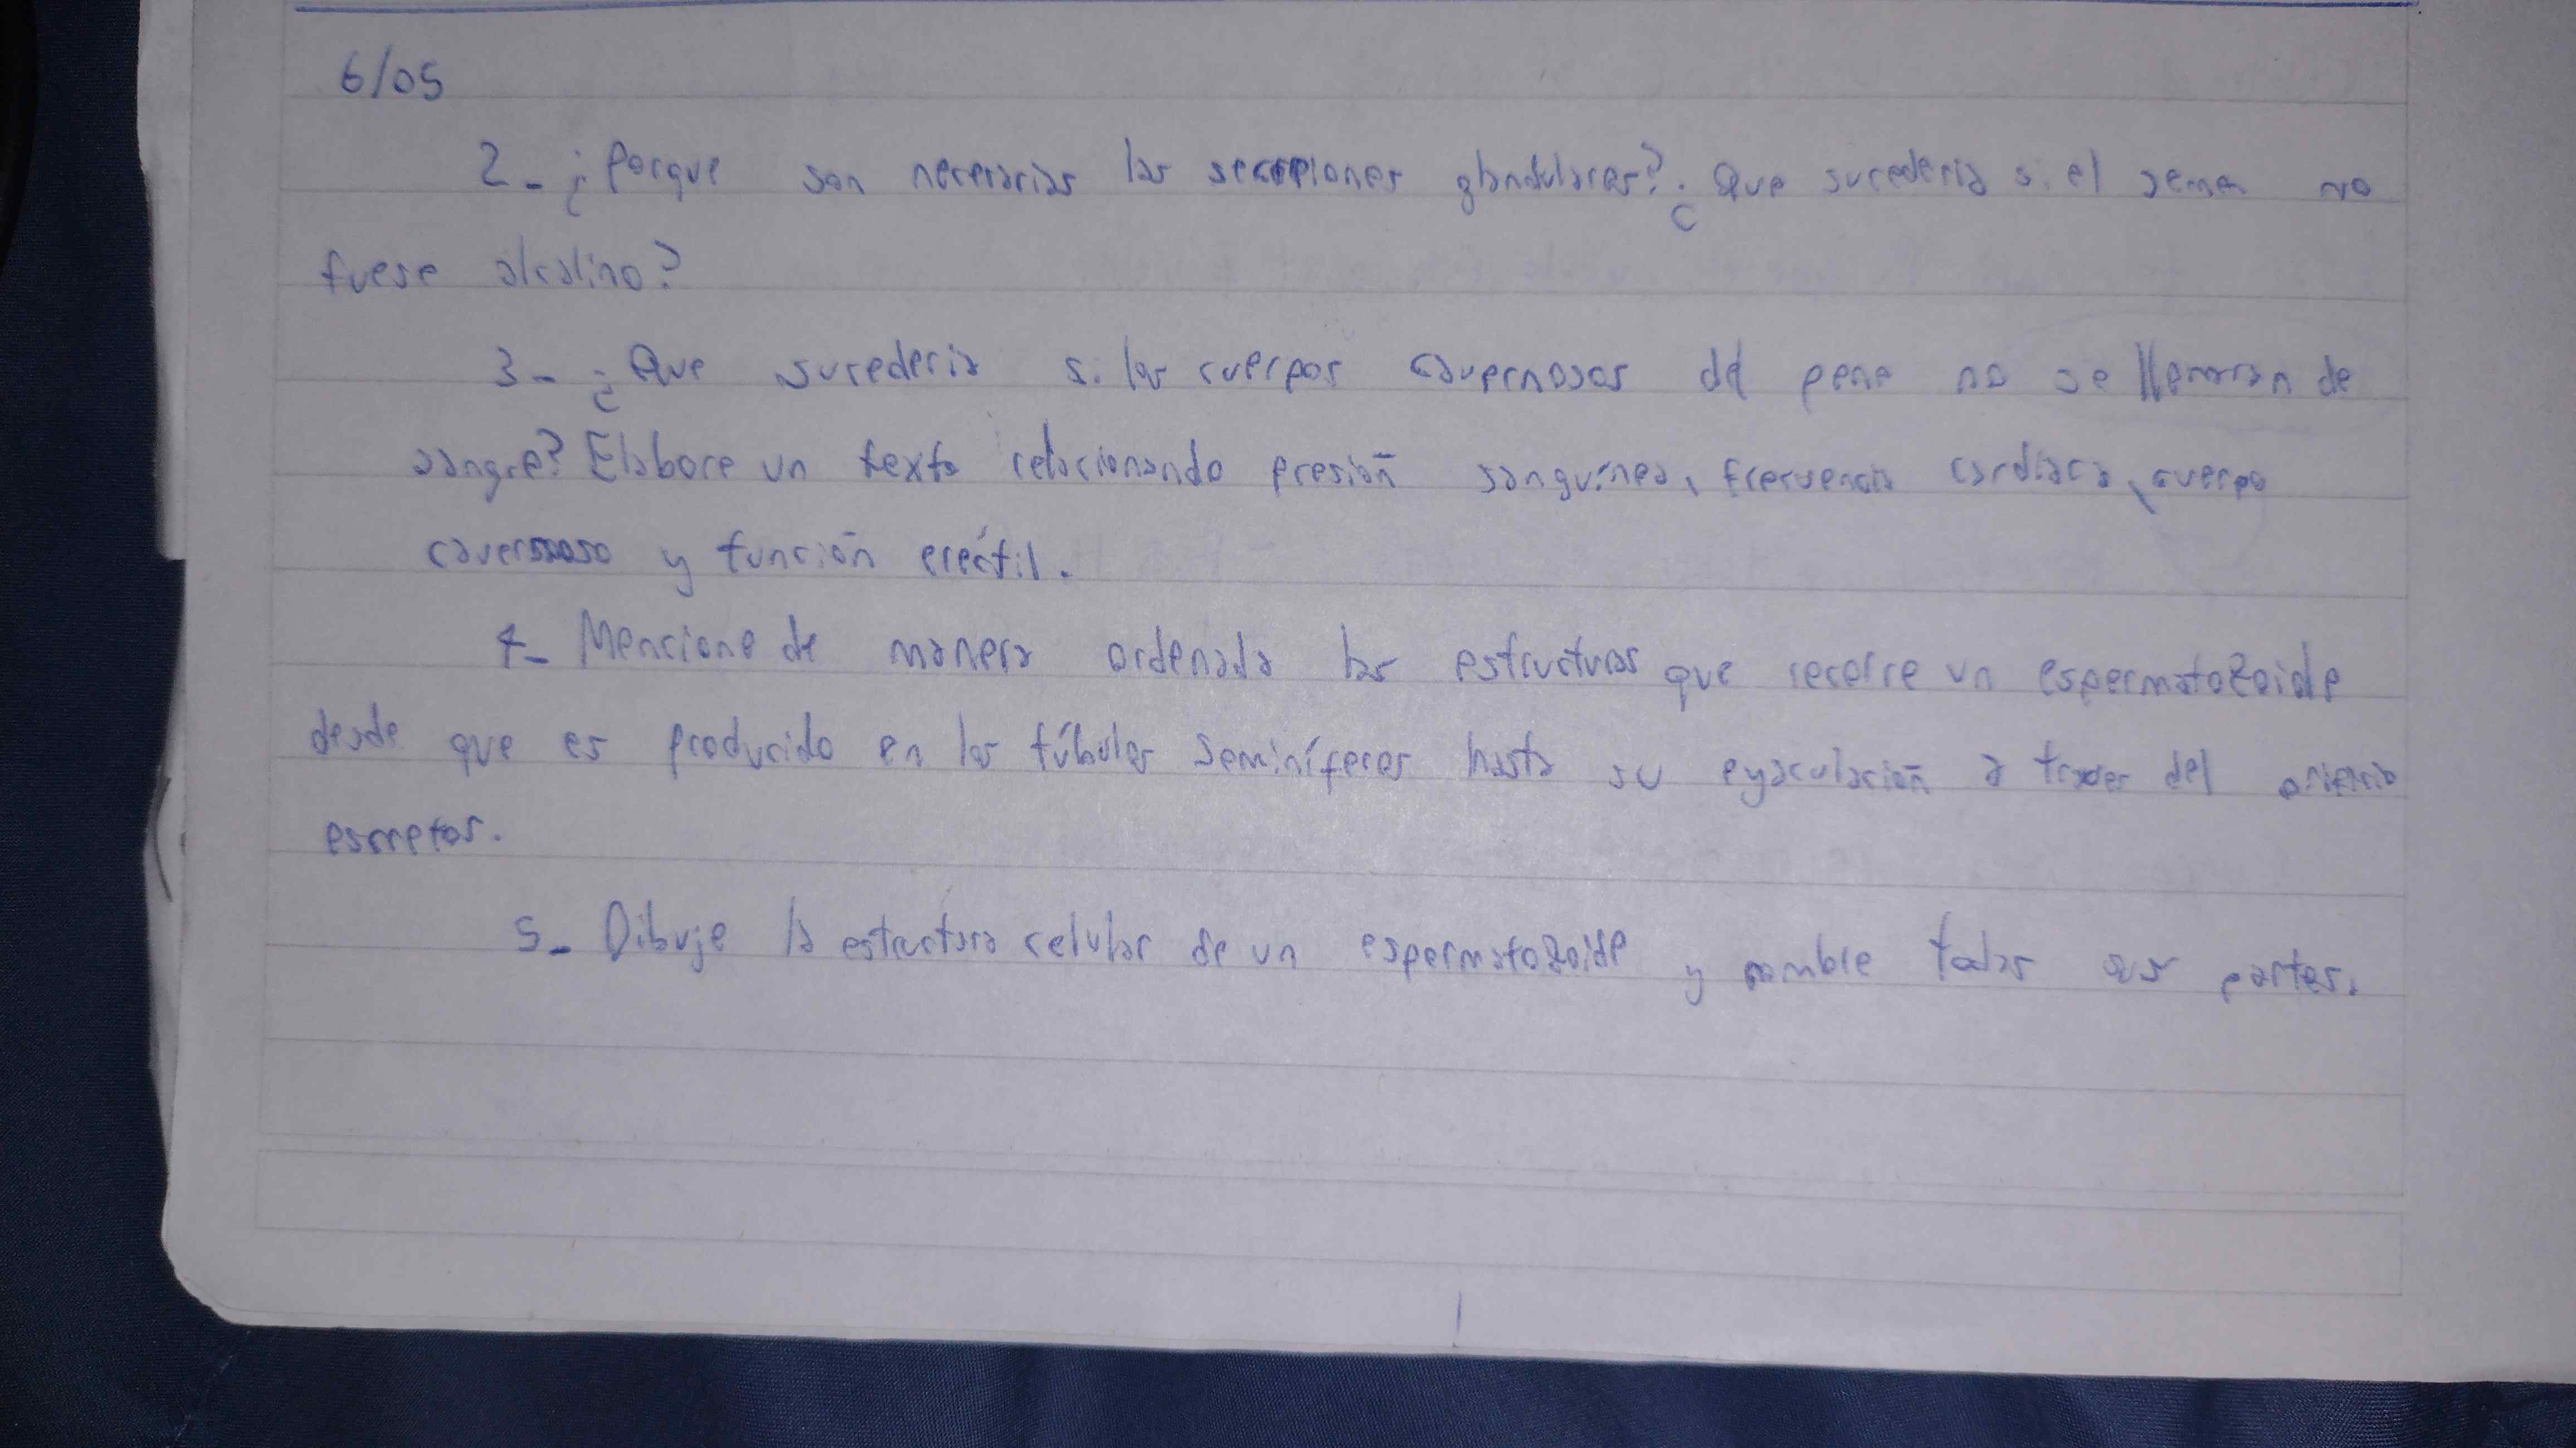 6/05
2- ¿Porque son necesarias las secreciones glandulares? ¿Que sucederia si el semen no
fuese alcalino?
3- ¿Que sucederia si los cuerpos cavernosos del pene no se llenaran de
sangre? Elabore un texto relacionando presión sanguínea, frecuencia cardiaca, cuerpo
cavernoso y función eréctil.
4- Mencione de manera ordenada las estructuras que recorre un espermatozoide
desde que es producido en los túbulos seminíferos hasta su eyaculación a traves del orificio
5- Dibuje la estructura celular de un espermatozoide y nombre todas sus partes.